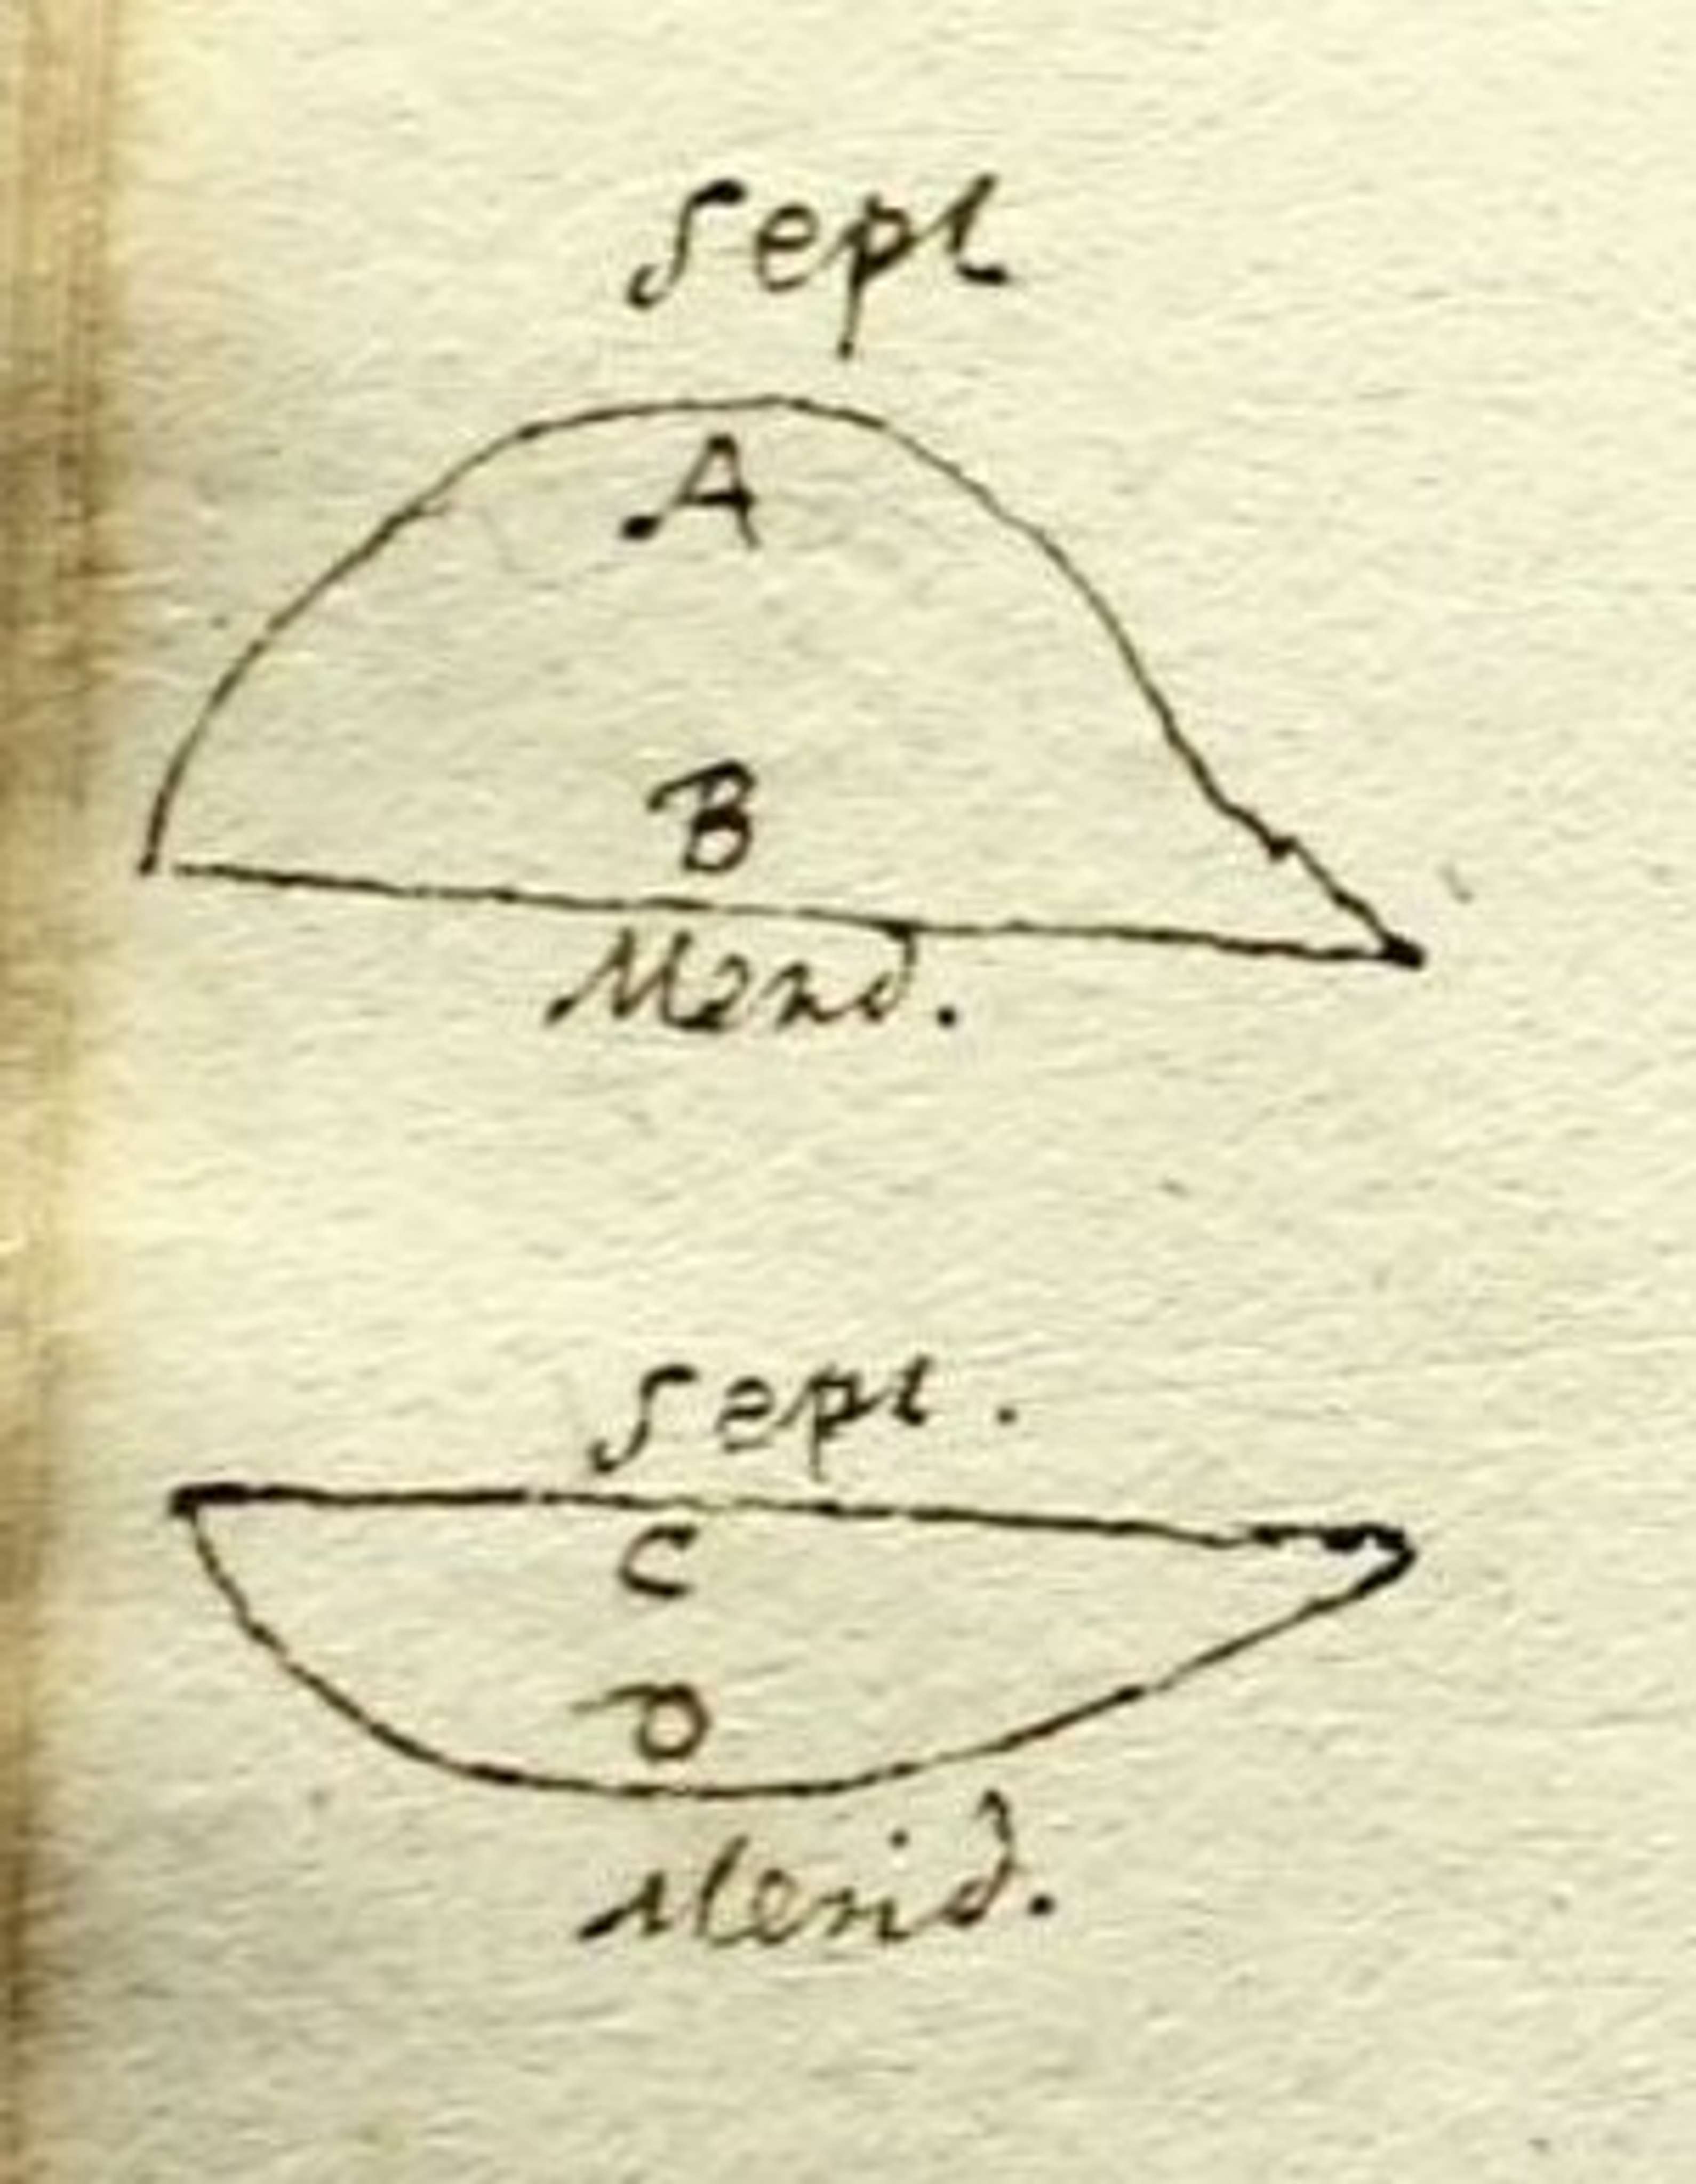 Sept
A
B
Merid.
Sept.
C
D
Merid.